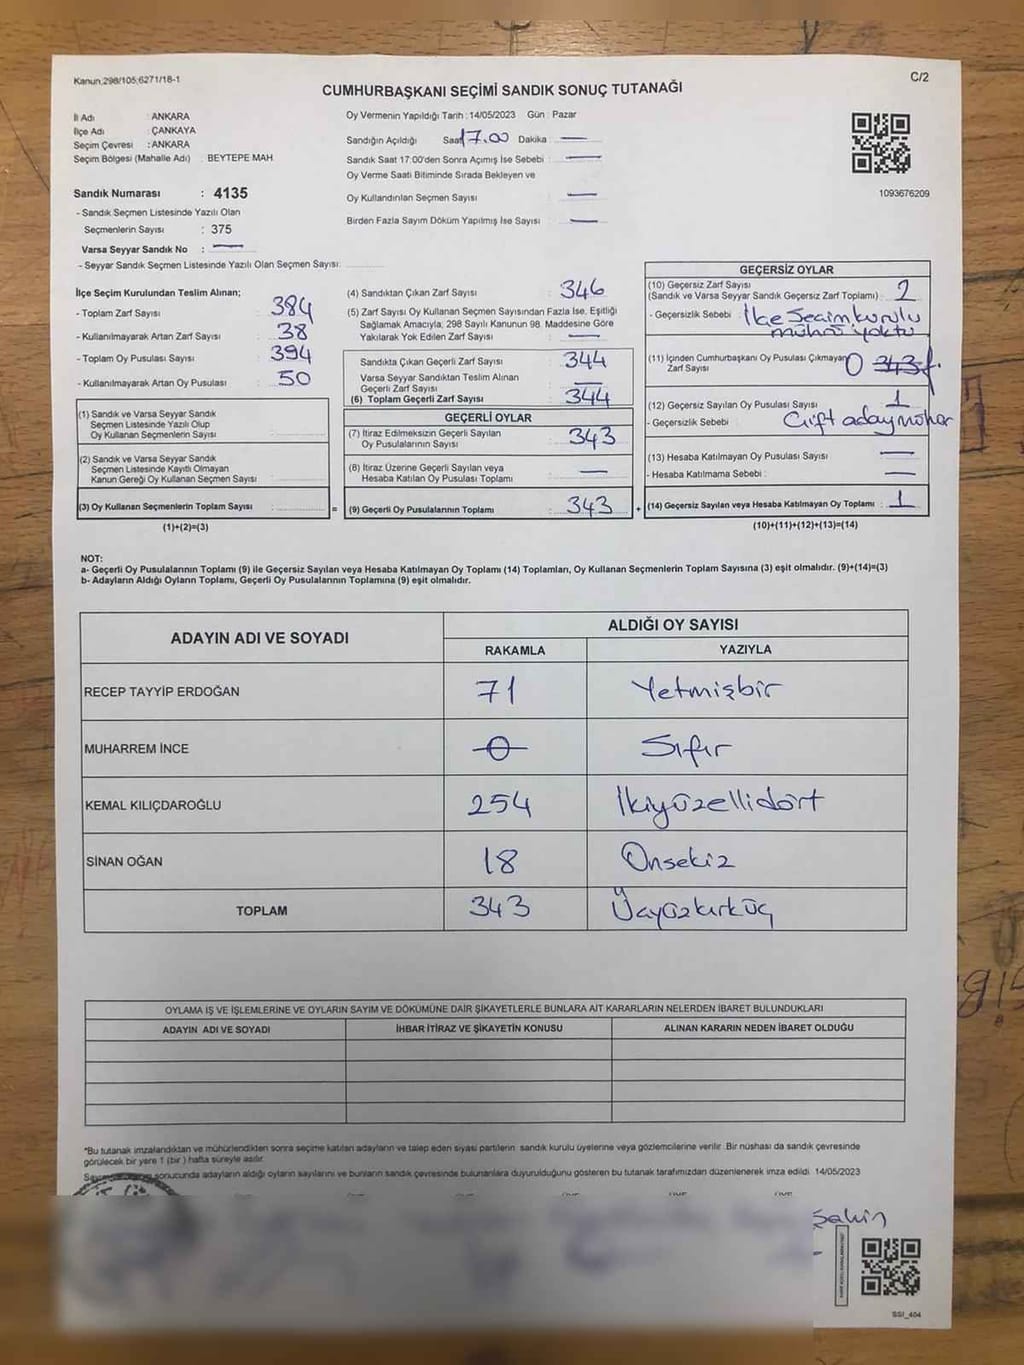 Kanun:298/105;6271/18-1
C/2
CUMHURBAŞKANI SEÇİMİ SANDIK SONUÇ TUTANAĞI
İl Adı : ANKARA
İlçe Adı : ÇANKAYA
Seçim Çevresi : ANKARA
Seçim Bölgesi (Mahalle Adı) : BEYTEPE MAH
Sandık Numarası : 4135
- Sandık Seçmen Listesinde Yazılı Olan
Seçmenlerin Sayısı : 375
Varsa Seyyar Sandık No : —
- Seyyar Sandık Seçmen Listesinde Yazılı Olan Seçmen Sayısı:
Oy Vermenin Yapıldığı Tarih : 14/05/2023 Gün : Pazar
Sandığın Açıldığı Saat 17.00 Dakika : —
Sandık Saat 17:00'den Sonra Açımış İse Sebebi : —
Oy Verme Saati Bitiminde Sırada Bekleyen ve
Oy Kullandırılan Seçmen Sayısı : —
Birden Fazla Sayım Döküm Yapılmış İse Sayısı : —
1093676209
İlçe Seçim Kurulundan Teslim Alınan;
- Toplam Zarf Sayısı : 384
- Kullanılmayarak Artan Zarf Sayısı : 38
- Toplam Oy Pusulası Sayısı : 394
- Kullanılmayarak Artan Oy Pusulası : 50
(1) Sandık ve Varsa Seyyar Sandık
Seçmen Listesinde Yazılı Olup
Oy Kullanan Seçmenlerin Sayısı :
(2) Sandık ve Varsa Seyyar Sandık
Seçmen Listesinde Kayıtlı Olmayan
Kanun Gereği Oy Kullanan Seçmen Sayısı :
(3) Oy Kullanan Seçmenlerin Toplam Sayısı :
(1)+(2)=(3)
=
(4) Sandıktan Çıkan Zarf Sayısı : 346
(5) Zarf Sayısı Oy Kullanan Seçmen Sayısından Fazla İse, Eşitliği
Sağlamak Amacıyla; 298 Sayılı Kanunun 98. Maddesine Göre
Yakılarak Yok Edilen Zarf Sayısı : —
Sandıkta Çıkan Geçerli Zarf Sayısı : 344
Varsa Seyyar Sandıktan Teslim Alınan
Geçerli Zarf Sayısı : —
(6) Toplam Geçerli Zarf Sayısı : 344
GEÇERLİ OYLAR
(7) İtiraz Edilmeksizin Geçerli Sayılan
Oy Pusulalarının Sayısı : 343
(8) İtiraz Üzerine Geçerli Sayılan veya
Hesaba Katılan Oy Pusulası Toplamı : —
(9) Geçerli Oy Pusulalarının Toplamı : 343
+
GEÇERSİZ OYLAR
(10) Geçersiz Zarf Sayısı
(Sandık ve Varsa Seyyar Sandık Geçersiz Zarf Toplamı) : 2
- Geçersizlik Sebebi : İlçe Seçim kurulu
mührü yoktu
(11) İçinden Cumhurbaşkanı Oy Pusulası Çıkmayan
Zarf Sayısı : 0 343
(12) Geçersiz Sayılan Oy Pusulası Sayısı : 1
- Geçersizlik Sebebi : Çift aday mühür
(13) Hesaba Katılmayan Oy Pusulası Sayısı : —
- Hesaba Katılmama Sebebi : —
(14) Geçersiz Sayılan veya Hesaba Katılmayan Oy Toplamı : 1
(10)+(11)+(12)+(13)=(14)
NOT:
a- Geçerli Oy Pusulalarının Toplamı (9) ile Geçersiz Sayılan veya Hesaba Katılmayan Oy Toplamı (14) Toplamları, Oy Kullanan Seçmenlerin Toplam Sayısına (3) eşit olmalıdır. (9)+(14)=(3)
b- Adayların Aldığı Oyların Toplamı, Geçerli Oy Pusulalarının Toplamına (9) eşit olmalıdır.
ADAYIN ADI VE SOYADI ALDIĞI OY SAYISI
RAKAMLA YAZIYLA
RECEP TAYYİP ERDOĞAN 71 Yetmişbir
MUHARREM İNCE 0 Sıfır
KEMAL KILIÇDAROĞLU 254 İkiyüzellidört
SİNAN OĞAN 18 Onsekiz
TOPLAM 343 Üçyüzkırküç
OYLAMA İŞ VE İŞLEMLERİNE VE OYLARIN SAYIM VE DÖKÜMÜNE DAİR ŞİKAYETLERLE BUNLARA AİT KARARLARIN NELERDEN İBARET BULUNDUKLARI
ADAYIN ADI VE SOYADI İHBAR İTİRAZ VE ŞİKAYETİN KONUSU ALINAN KARARIN NEDEN İBARET OLDUĞU
*Bu tutanak imzalandıktan ve mühürlendikten sonra seçime katılan adayların ve talep eden siyasi partilerin sandık kurulu üyelerine veya gözlemcilerine verilir. Bir nüshası da sandık çevresinde
görülecek bir yere 1 (bir) hafta süreyle asılır.
sonucunda adayların aldığı oyların sayılarını ve bunların sandık çevresinde bulunanlara duyurulduğunu gösteren bu tutanak tarafımızdan düzenlenerek imza edildi. 14/05/2023
Şahin
SSI_404